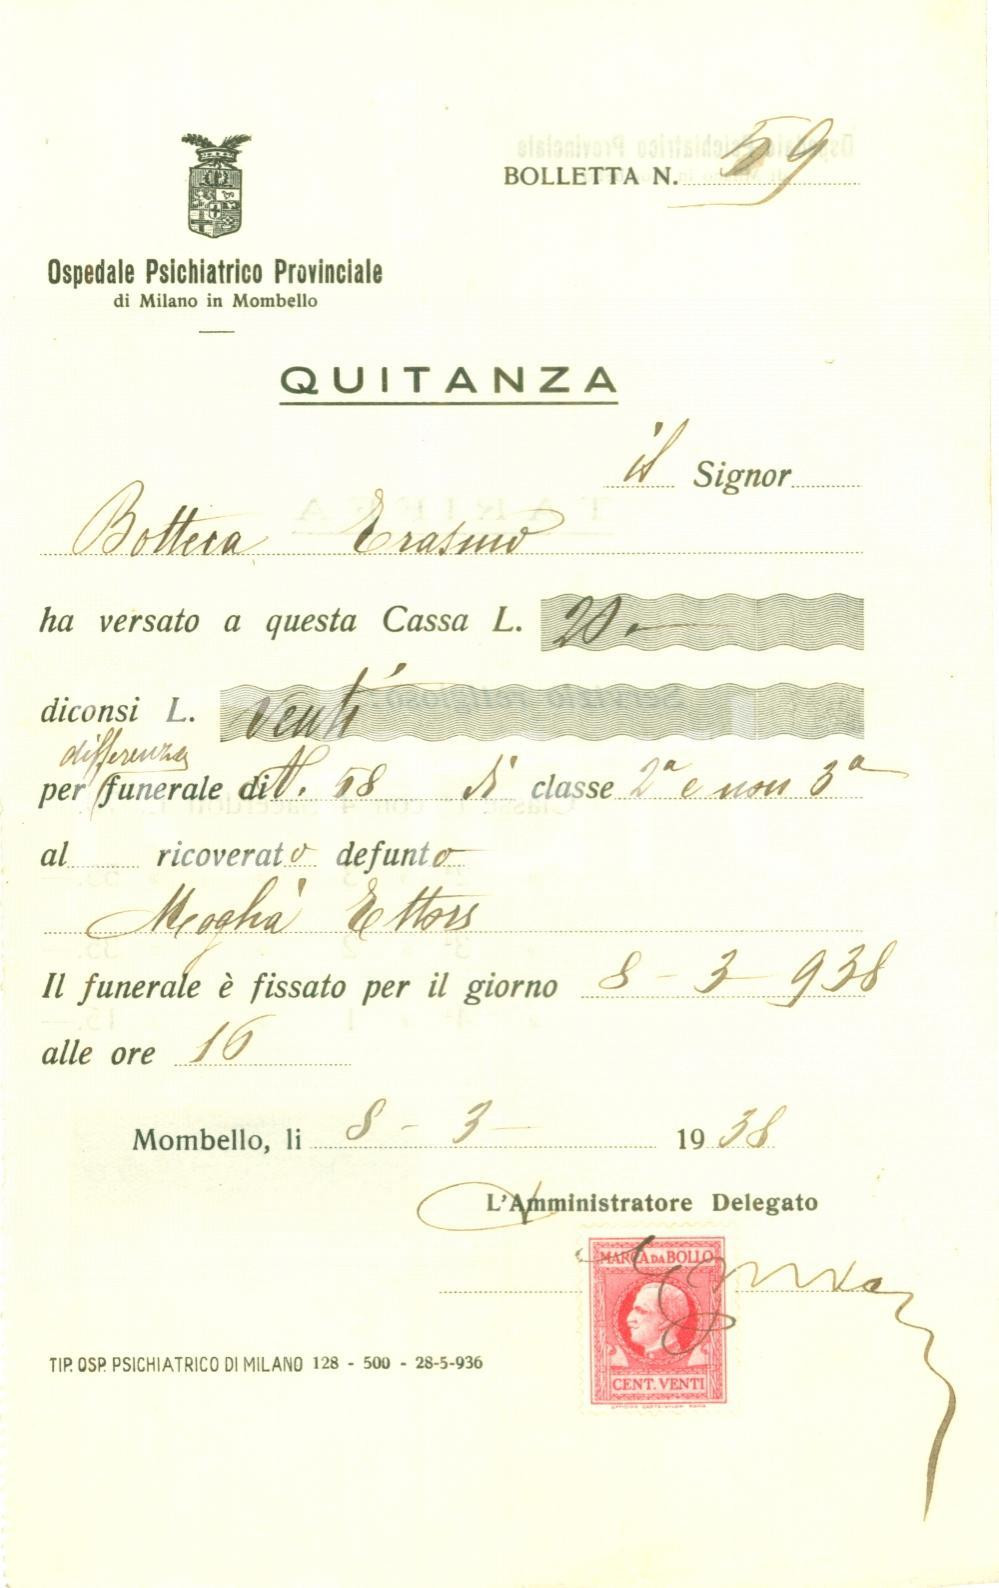 BOLLETTA N. 59
Ospedale Psichiatrico Provinciale
di Milano in Mombello
QUITANZA
il Signor
Botteca Erasmo
ha versato a questa Cassa L. 20.—
diconsi L. venti
differenza
per funerale di N. 58 di classe 2ª e non 3ª
al ricoverato defunto
Moghà Ettore
Il funerale è fissato per il giorno 8 - 3 - 938
alle ore 16
Mombello, li 8 - 3 - 1938
L'Amministratore Delegato
MARCA DA BOLLO
CENT. VENTI
TIP. OSP. PSICHIATRICO DI MILANO 128 - 500 - 28-5-936